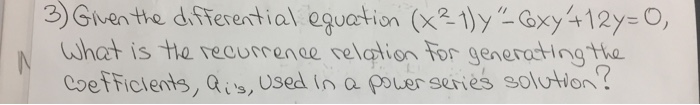 3) Given the differential equation (x²-1)y"-6xy'+12y=0,
What is the recurrence relation for generating the
coefficients, ai's, used in a power series solution?